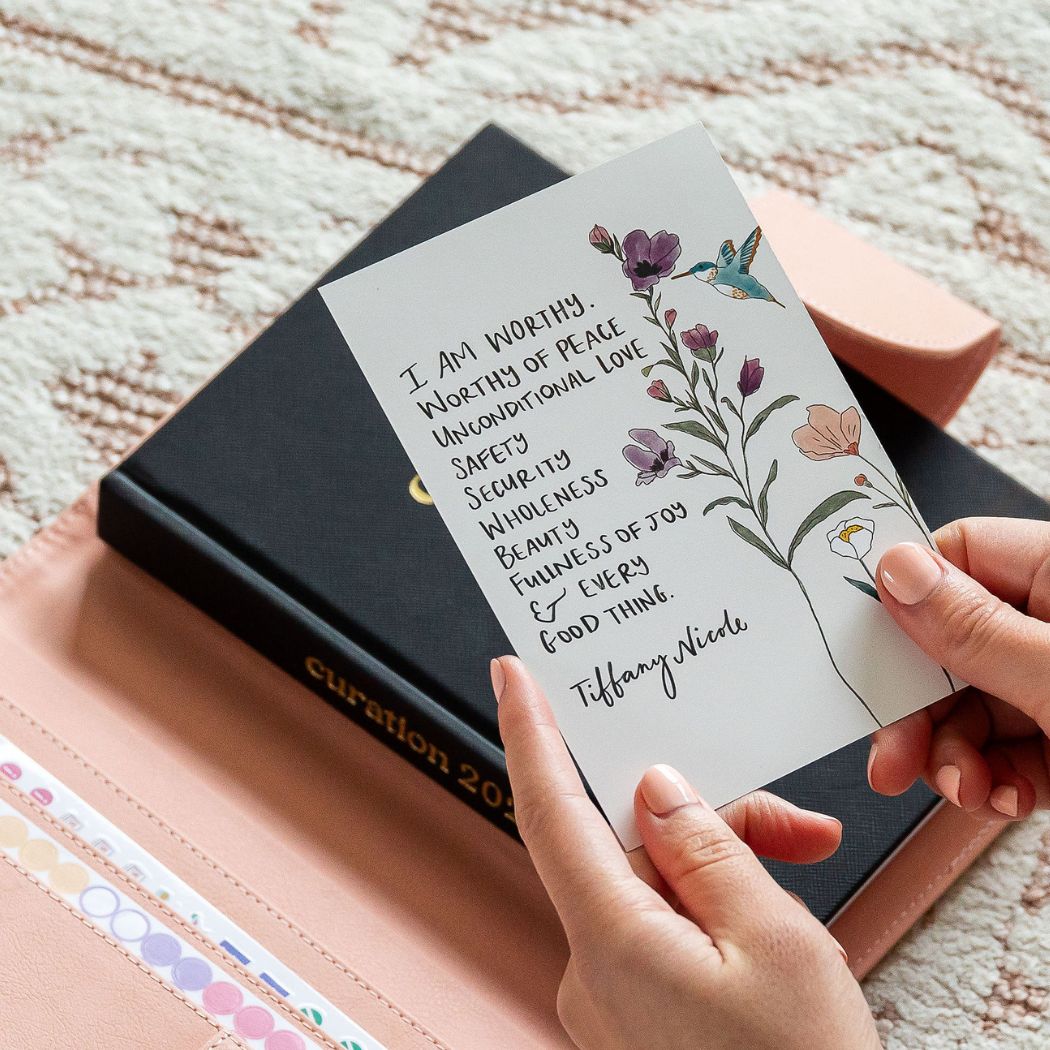 I AM WORTHY.
WORTHY OF PEACE
UNCONDITIONAL LOVE
SAFETY
SECURITY
WHOLENESS
BEAUTY
FULLNESS OF JOY
& EVERY
GOOD THING.
Tiffany Nicole
curation